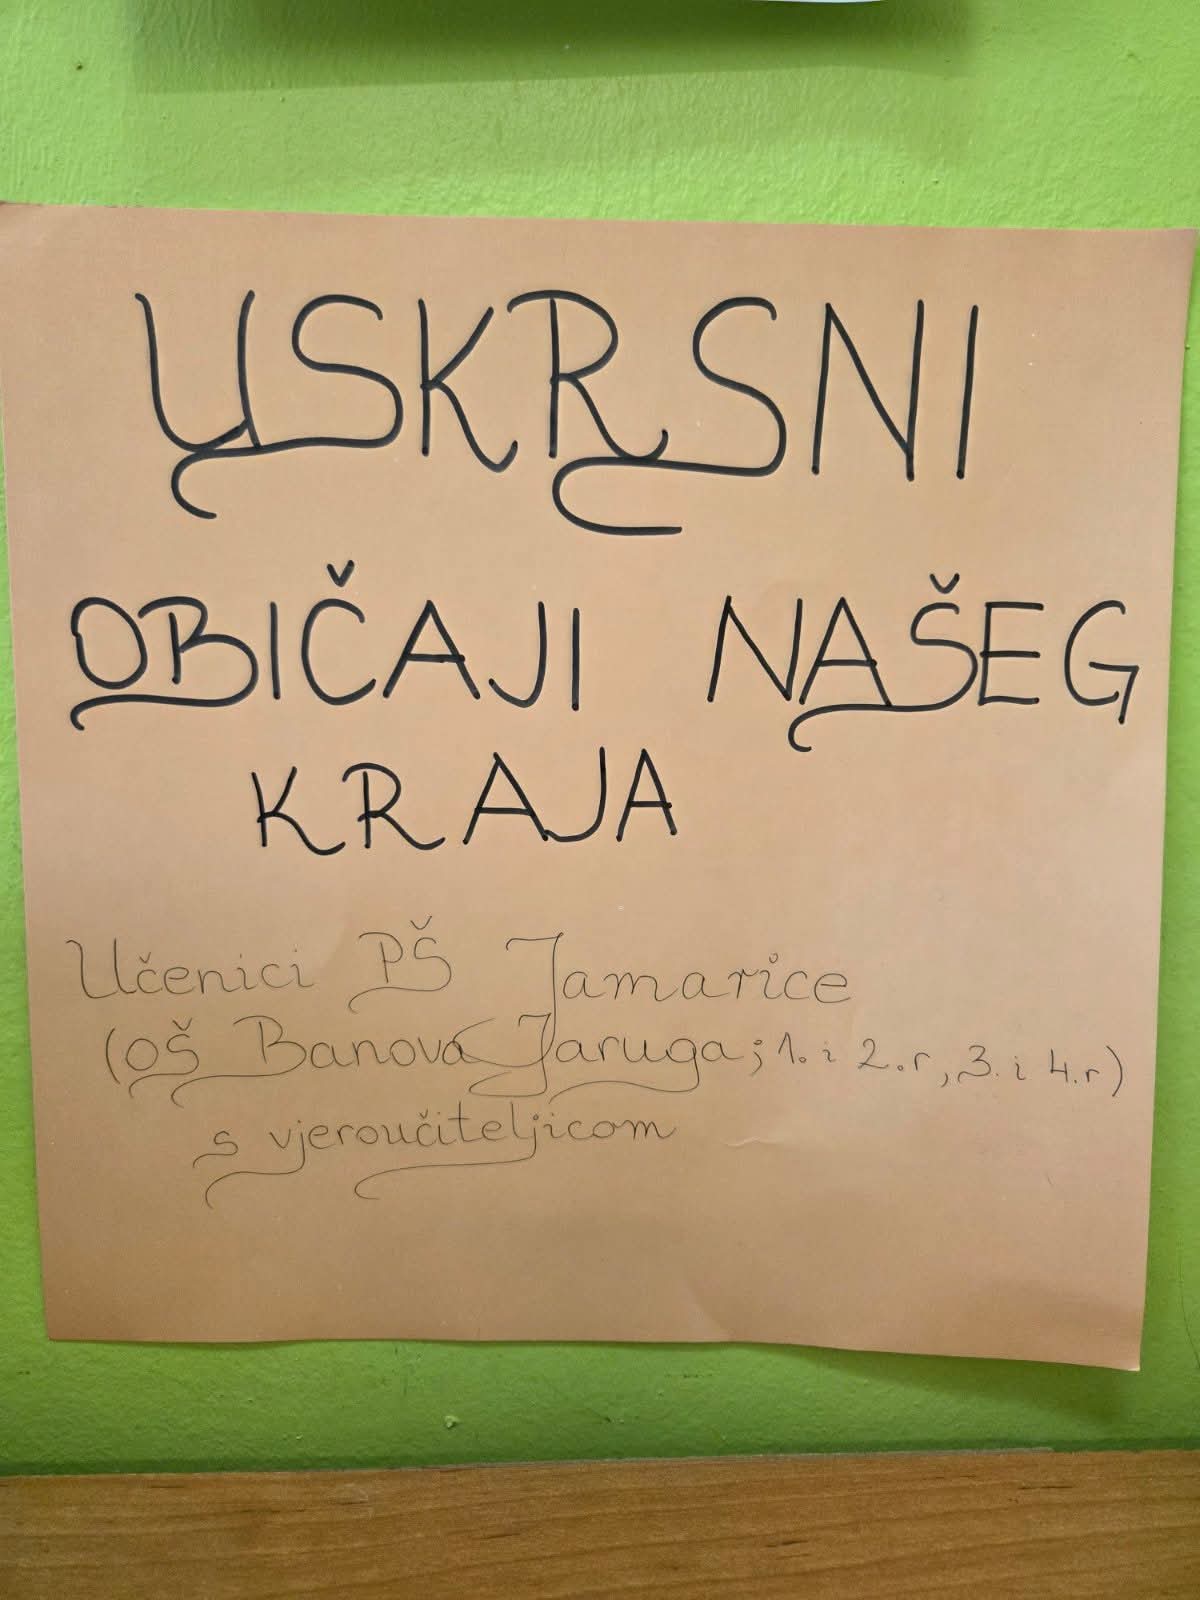 USKRSNI
OBIČAJI NAŠEG
KRAJA
Učenici PŠ Jamarice
(OŠ Banova Jaruga; 1. i 2.r, 3. i 4.r)
s vjeroučiteljicom